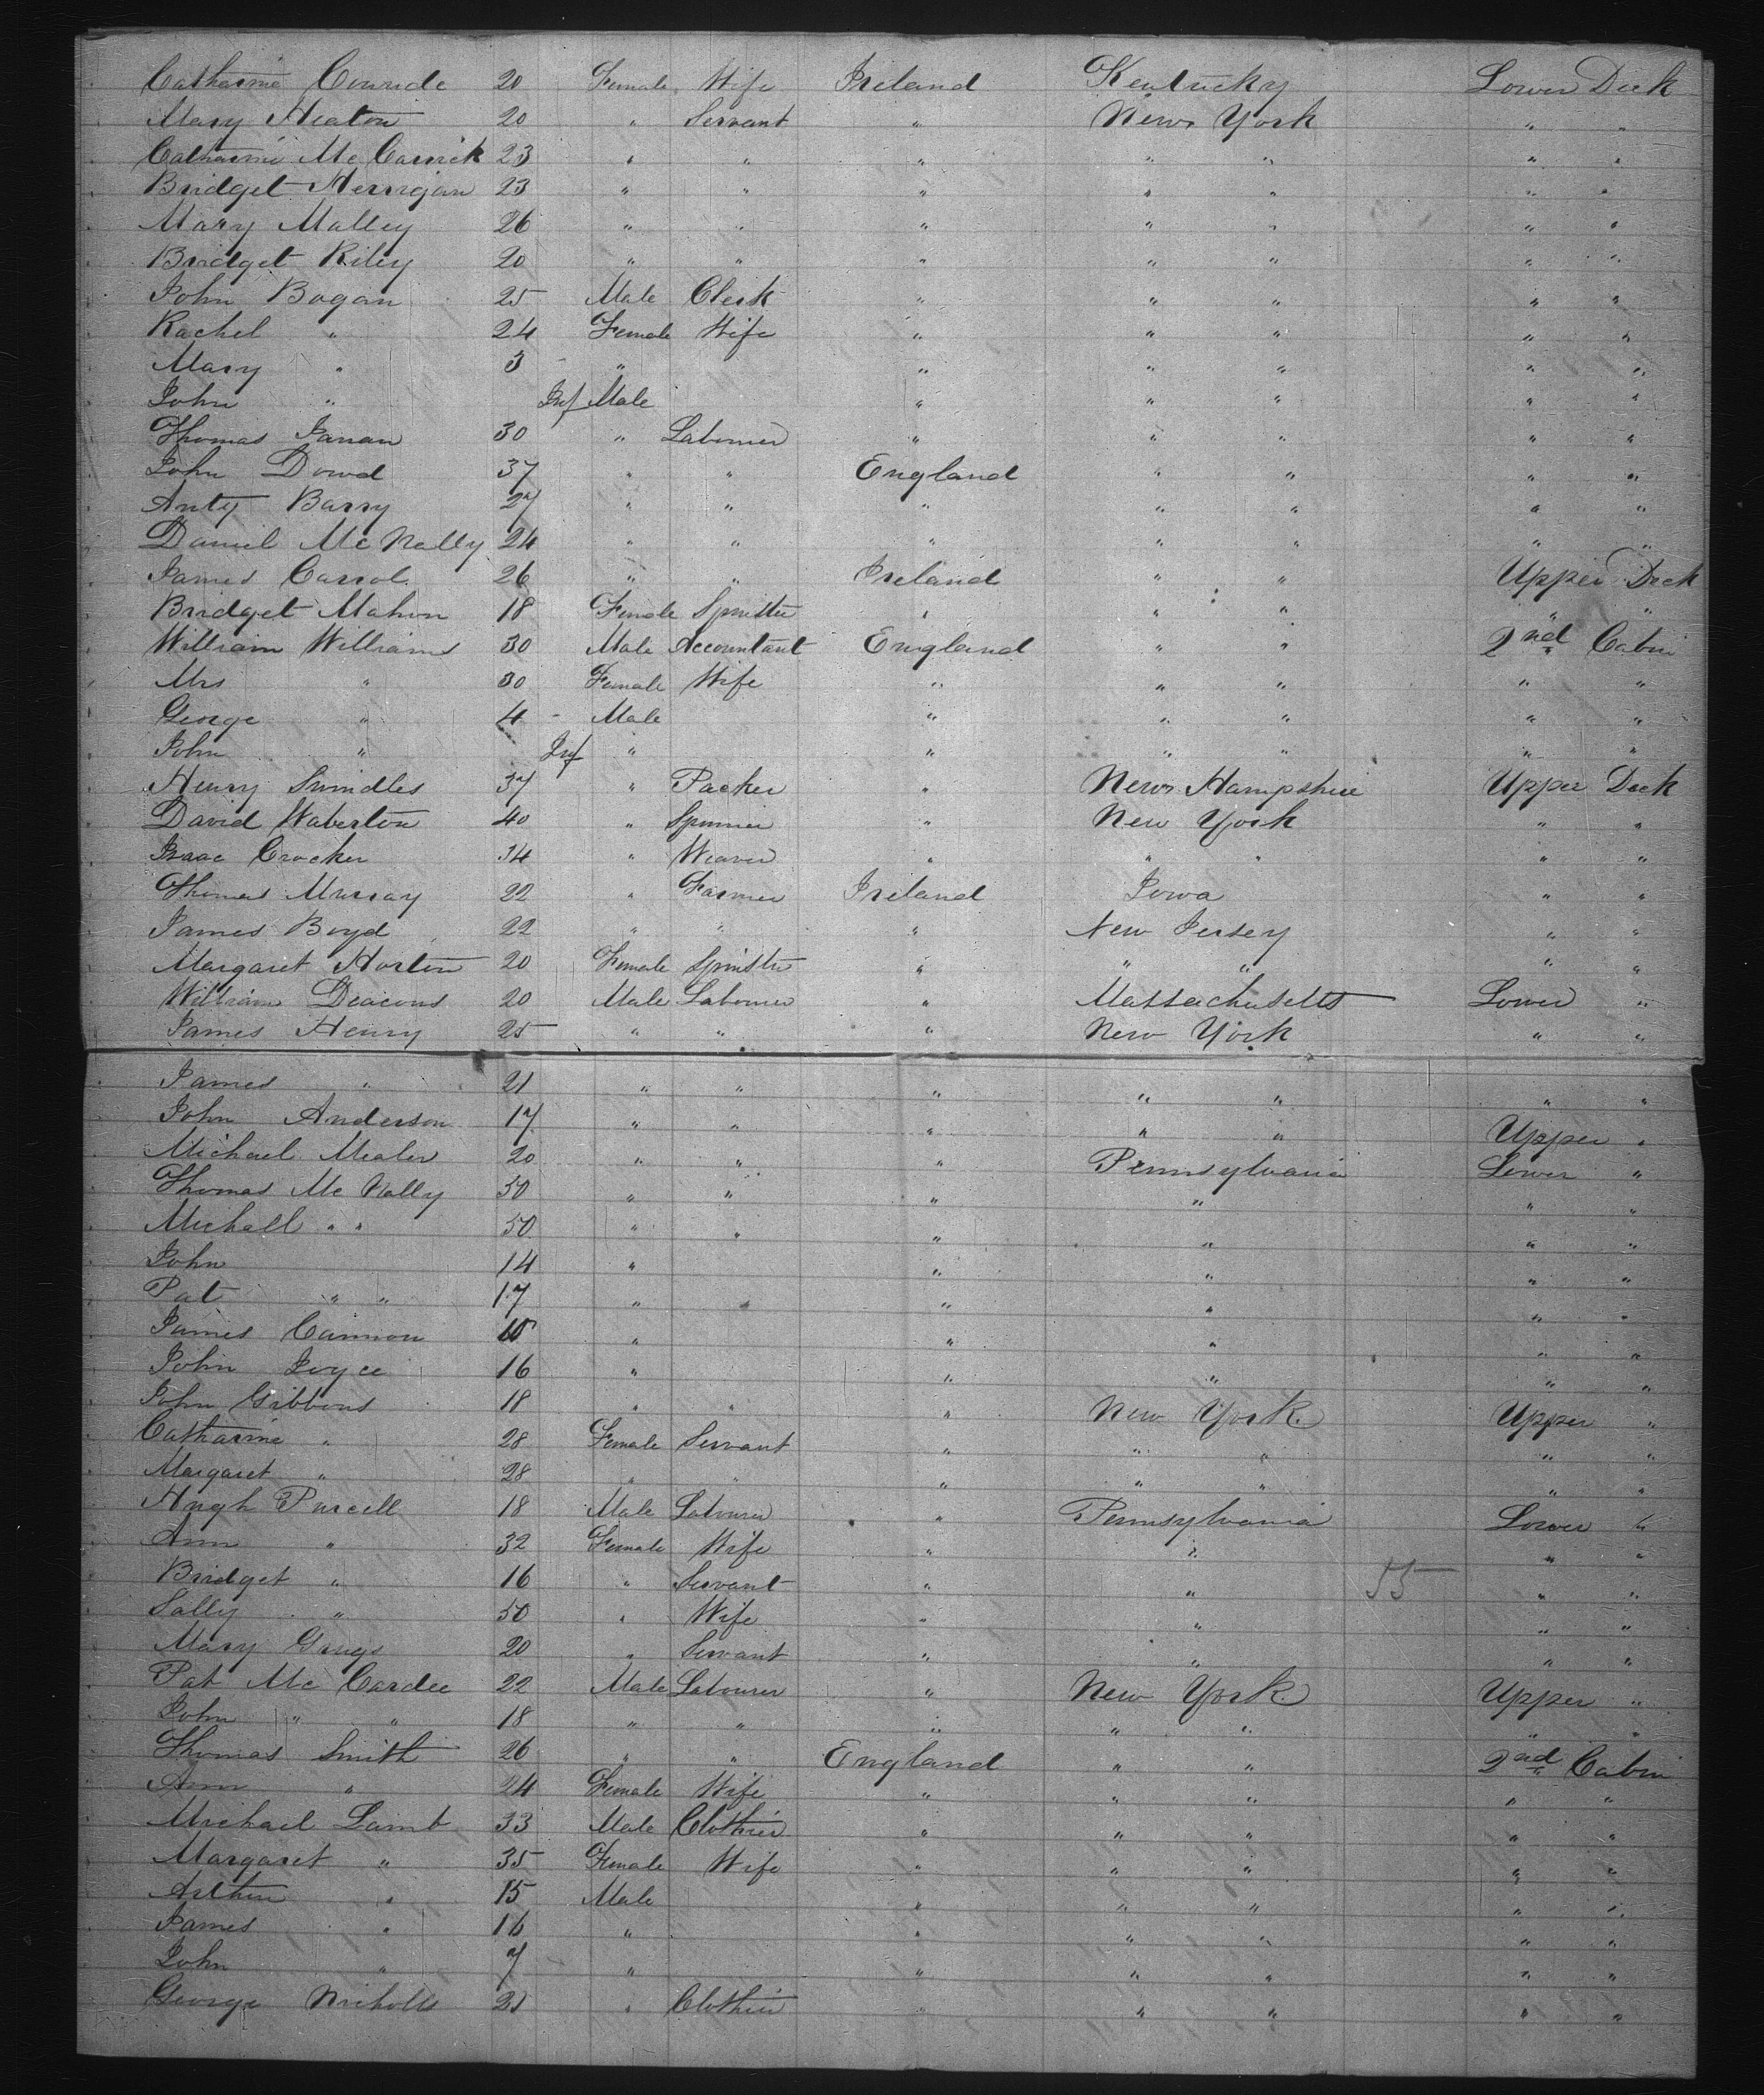 Catharine Conride 20 Female Wife Ireland Kentucky Lower Deck
Mary Heaton 20 " Servant " New York " "
Catharine McCarrick 23 " " " " " " "
Bridget Herrigan 23 " " " " " " "
Mary Malley 26 " " " " " " "
Bridget Riley 20 " " " " " " "
John Bogan 25 Male Clerk " " " " "
Rachel " 24 Female Wife " " " " "
Mary " 3 - " " " " " "
John " Inf Male " " " " "
Thomas Janan 30 " Labourer " " " " "
John Dowd 37 " " England " " " "
Anty Barry 27 " " " " " " "
Daniel McNally 24 " " " " " " "
James Carrol 26 " " Ireland " " Upper Deck
Bridget Mahon 18 Female Spinster " " " " "
William Williams 30 Male Accountant England " " 2nd Cabin
Mrs " 30 Female Wife " " " " "
George " 4 - Male " " " " "
John " Inf " " " " " "
Henry Swindles 37 " Packer " New Hampshire Upper Deck
David Waberton 40 " Spinner " New York " "
Isaac Crocker 34 " Weaver " " " " "
Thomas Murray 22 " Farmer Ireland Iowa " "
James Boyd 22 " " " New Jersey " "
Margaret Horton 20 Female Spinster " " " " "
William Deacons 20 Male Labourer " Massachusetts Lower "
James Henry 25 " " " New York " "
James " 21 " " " " " " "
John Anderson 17 " " " " " Upper "
Michael Mealer 20 " " " Pennsylvania Lower "
Thomas McNally 50 " " " " " "
Michall " " 50 " " " " " "
John 14 " " " " "
Pat " " 17 " " " " " "
James Cannon 15 " " " " "
John Joyce 16 " " " " "
John Gibbons 18 " " " New York Upper "
Catharine " 28 Female Servant " " " " "
Margaret " 28 " " " " " " "
Hugh Purcell 18 Male Labourer " Pennsylvania Lower "
Ann " 32 Female Wife " " " "
Bridget " 16 " Servant " " 55 " "
Sally " 50 " Wife " " " "
Mary 20 " Servant " " " "
Pat Mc Cardee 22 Male Labourer " New York Upper "
John " " 18 " " " " " " "
Thomas Smith 26 " " England " " 2nd Cabin
Ann " 24 Female Wife " " " " "
Michael Lamb 33 Male Clothier " " " " "
Margaret " 35 Female Wife " " " " "
Arthur " 15 Male " " " " "
James " 16 " " " " " "
John " 7 " " " " " "
George Nicholls 21 " Clothier " " " " "